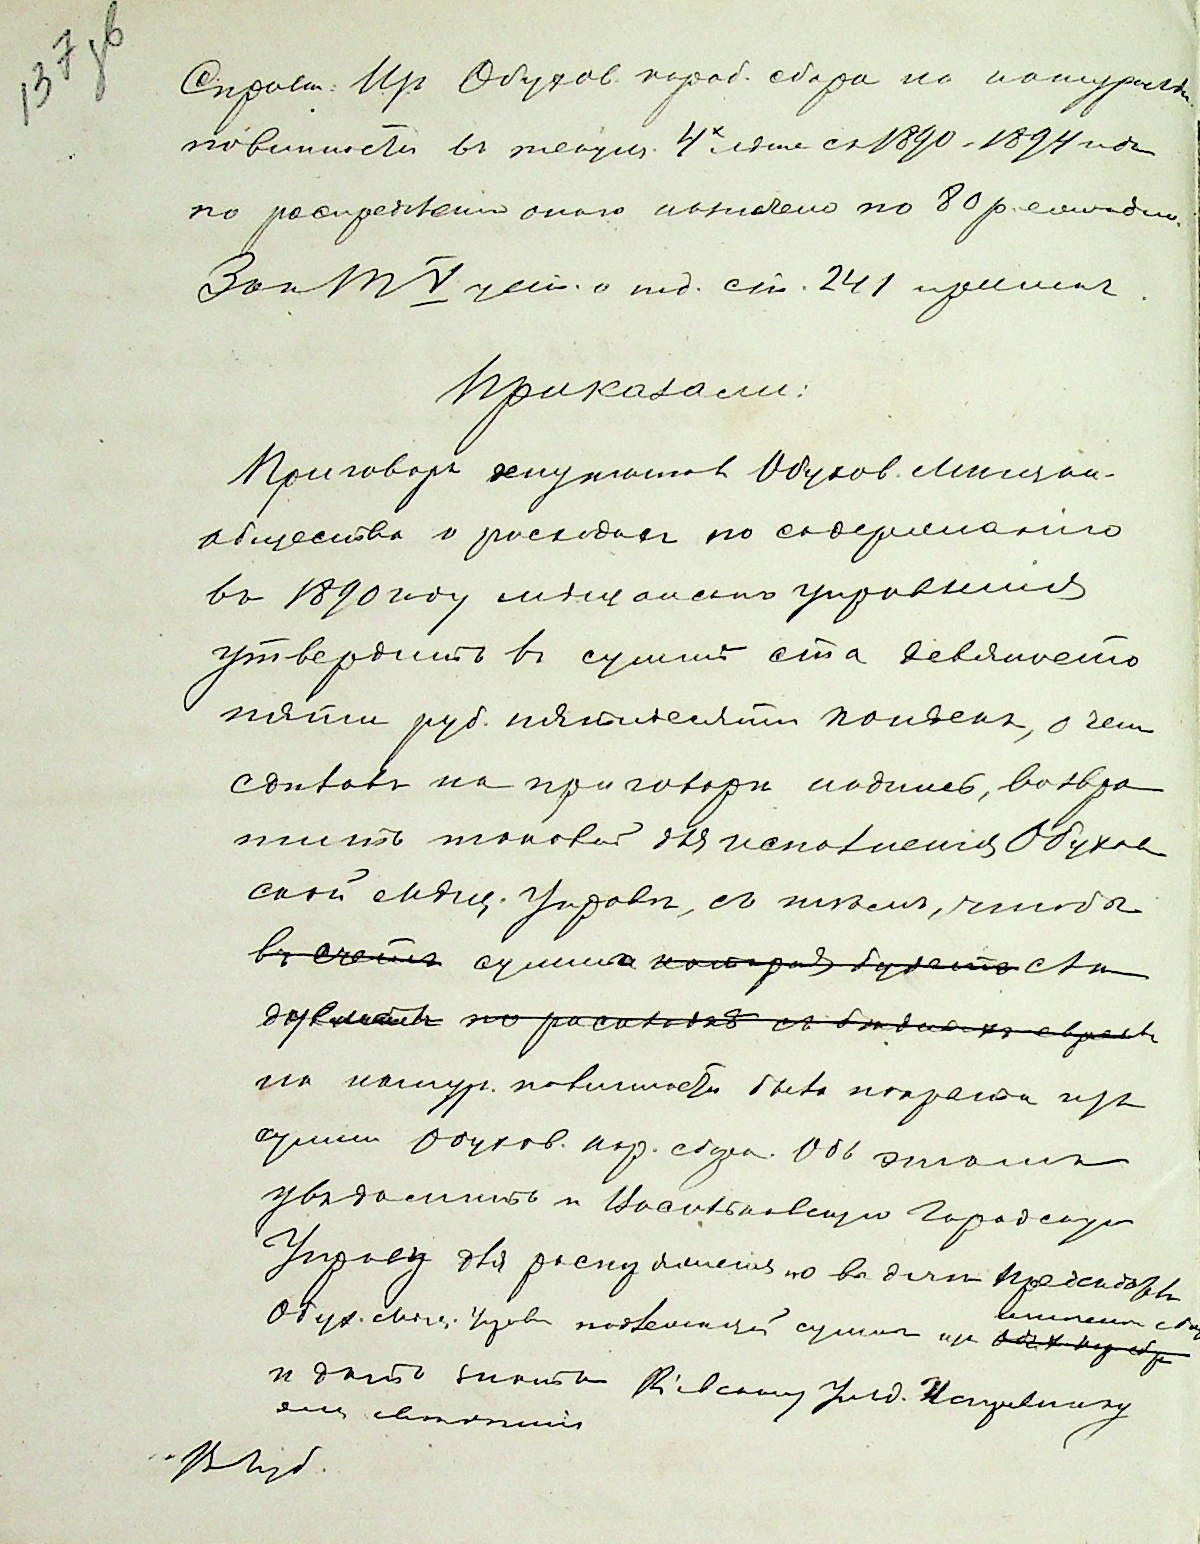 137 об
Справк: Из Обухов. короб. сбора на натуральн.
повинности въ текущ. 4х лѣтіе съ 1890-1894 года
по распредѣленію онаго назначено по 80 р. ежегодно.
Зак. Т V уст. о под. ст. 241 примѣч.
Приказали:
Приговоръ депутатовъ Обухов. Мѣщан.
общества о расходахъ по содержанію
въ 1890 году мѣщанскаго управленія
утвердить въ суммѣ ста девяносто
пяти руб. пятидесяти копѣекъ, о чемъ
сдѣлавъ на приговорѣ надпись, возвра
тить таковой для исполненія Обухов
ской мѣщ. Управѣ, съ тѣмъ, чтобы
въ счетъ сумма которая будетъ слѣ
по расходамъ съ бѣдныхъ евреевъ
на натур. повинности была покрыта изъ
суммъ Обухов. кор. сбора. Объ этомъ
увѣдомить и Васильковскую Городскую
Управу для распоряженія о выдачѣ предсѣдат
Обух. мѣщ. Управы надлежащей суммы изъ
и дать знать Кіевскому Уѣзд. Исправнику